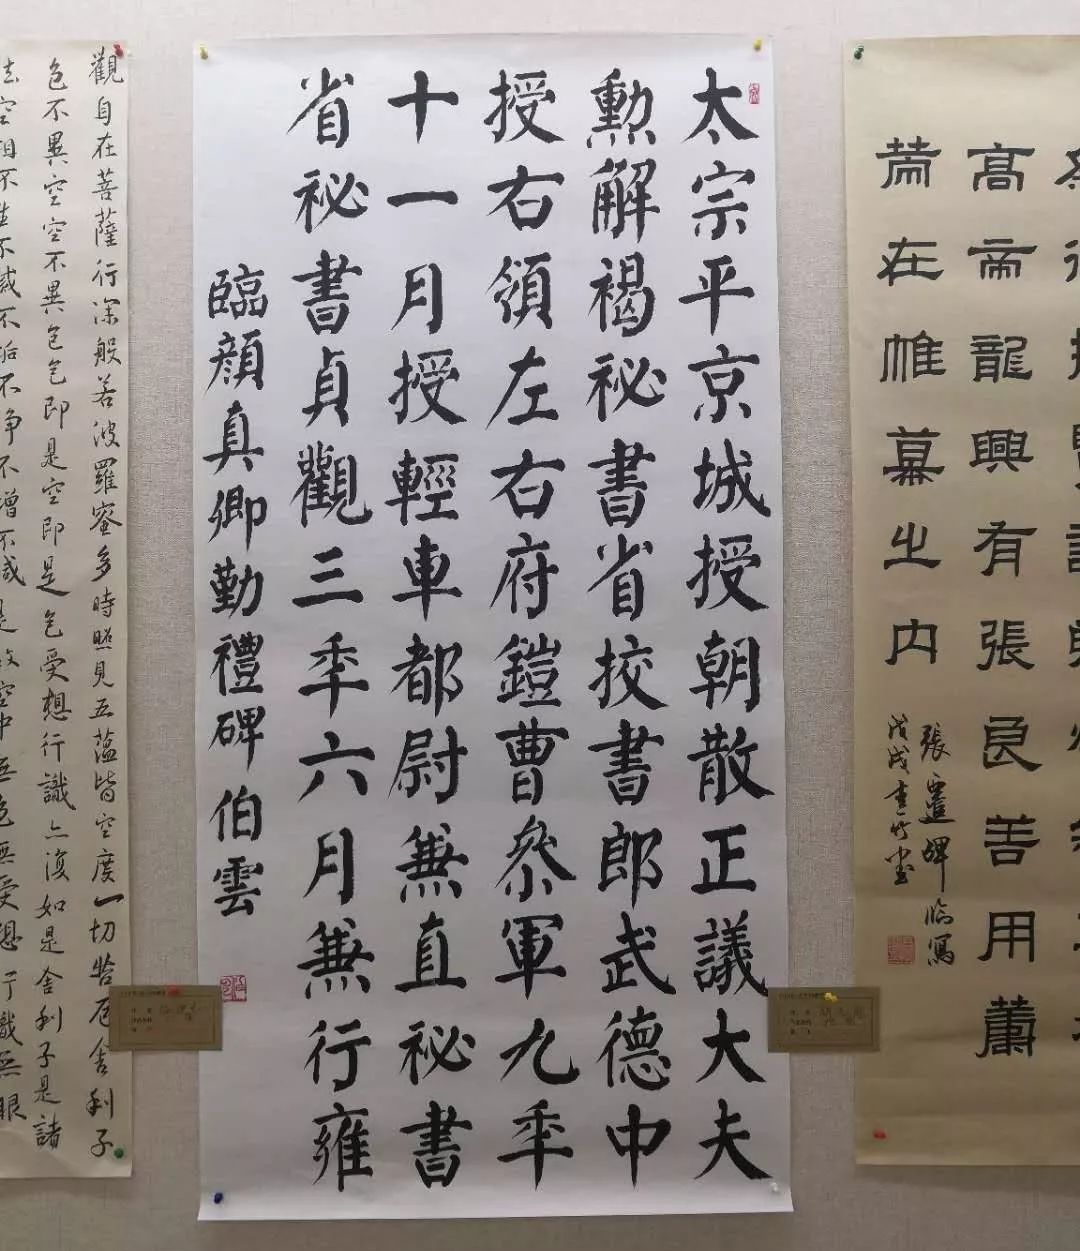 高帝龍興有張良善用
在帷幕之内
張遷碑臨寫
戊戌
太宗平京城授朝散正議大夫
勲解褐祕書省挍書郎武德中
授右領左右府鎧曹參軍九年
十一月授輕車都尉兼直祕書
省祕書貞觀三年六月兼行雍
臨顏真卿勤禮碑伯雲
觀自在菩薩行深般若波羅蜜多時照見五蘊皆空度一切苦厄舍利子
色不異空空不異色色即是空即是色受想行識亦復如是舍利子是諸
法空相不生不滅不垢不淨不增不減是故空中無色無受想行識無眼